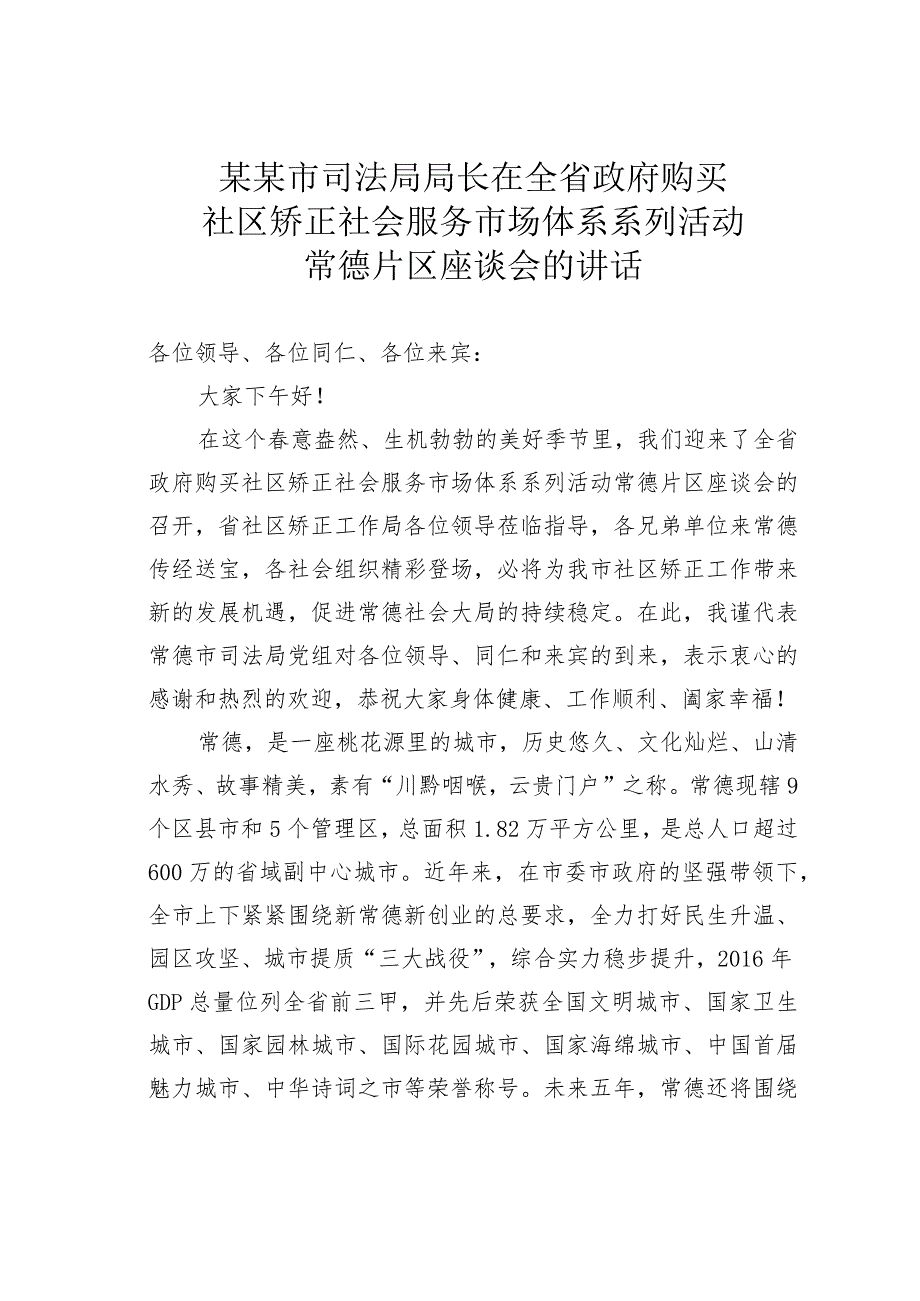 某某市司法局局长在全省政府购买
社区矫正社会服务市场体系系列活动
常德片区座谈会的讲话
各位领导、各位同仁、各位来宾：
大家下午好！
在这个春意盎然、生机勃勃的美好季节里，我们迎来了全省
政府购买社区矫正社会服务市场体系系列活动常德片区座谈会的
召开，省社区矫正工作局各位领导莅临指导，各兄弟单位来常德
传经送宝，各社会组织精彩登场，必将为我市社区矫正工作带来
新的发展机遇，促进常德社会大局的持续稳定。在此，我谨代表
常德市司法局党组对各位领导、同仁和来宾的到来，表示衷心的
感谢和热烈的欢迎，恭祝大家身体健康、工作顺利、阖家幸福！
常德，是一座桃花源里的城市，历史悠久、文化灿烂、山清
水秀、故事精美，素有“川黔咽喉，云贵门户”之称。常德现辖9
个区县市和5个管理区，总面积1.82万平方公里，是总人口超过
600万的省域副中心城市。近年来，在市委市政府的坚强带领下，
全市上下紧紧围绕新常德新创业的总要求，全力打好民生升温、
园区攻坚、城市提质“三大战役”，综合实力稳步提升，2016年
GDP总量位列全省前三甲，并先后荣获全国文明城市、国家卫生
城市、国家园林城市、国际花园城市、国家海绵城市、中国首届
魅力城市、中华诗词之市等荣誉称号。未来五年，常德还将围绕